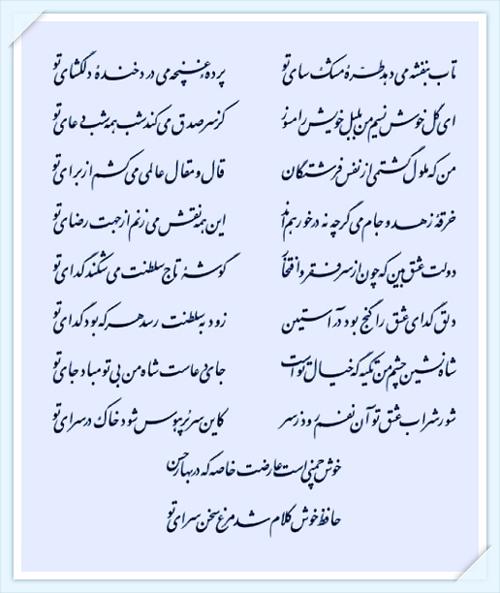 تاب بنفشه می دهد طرهٔ مشک سای تو پردهٔ غنچه می درد خندهٔ دلگشای تو
ای گل خوش نسیم من بلبل خویش را مسوز کز سر صدق می کند شب همه شب دعای تو
من که ملول گشتمی از نفس فرشتگان قال و مقال عالمی می کشم از برای تو
خرقهٔ زهد و جام می گرچه نه درخور همند این همه نقش می زنم از جهت رضای تو
دولت عشق بین که چون از سر فقر و افتخار گوشهٔ تاج سلطنت می شکند گدای تو
دلق گدای عشق را گنج بود در آستین زود به سلطنت رسد هر که بود گدای تو
شاه نشین چشم من تکیه گه خیال توست جای دعاست شاه من بی تو مباد جای تو
شور شراب عشق تو آن نفسم رود ز سر کاین سر پر هوس شود خاک در سرای تو
خوش چمنی است عارضت خاصه که در بهار حسن
حافظ خوش کلام شد مرغ سخن سرای تو